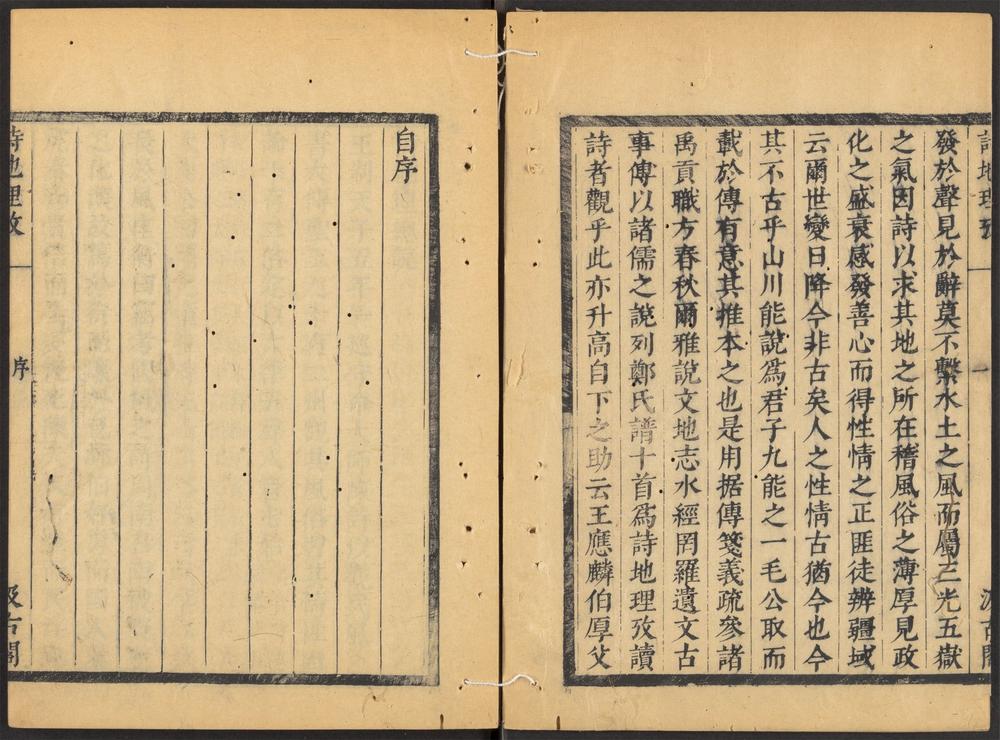 詩地理攷
發於聲見於辭莫不繫水土之風而屬三光五嶽
之氣因詩以求其地之所在稽風俗之薄厚見政
化之盛衰感發善心而得性情之正匪徒辨疆域
云爾世變日降今非古矣人之性情古猶今也今
其不古乎山川能說為君子九能之一毛公取而
載於傳有意其推本之也是用据傳箋義疏參諸
禹貢職方春秋爾雅說文地志水經罔羅遺文古
事傳以諸儒之說列鄭氏譜十首為詩地理攷讀
詩者觀乎此亦升高自下之助云王應麟伯厚父
自序
詩地理攷
序
汲古閣